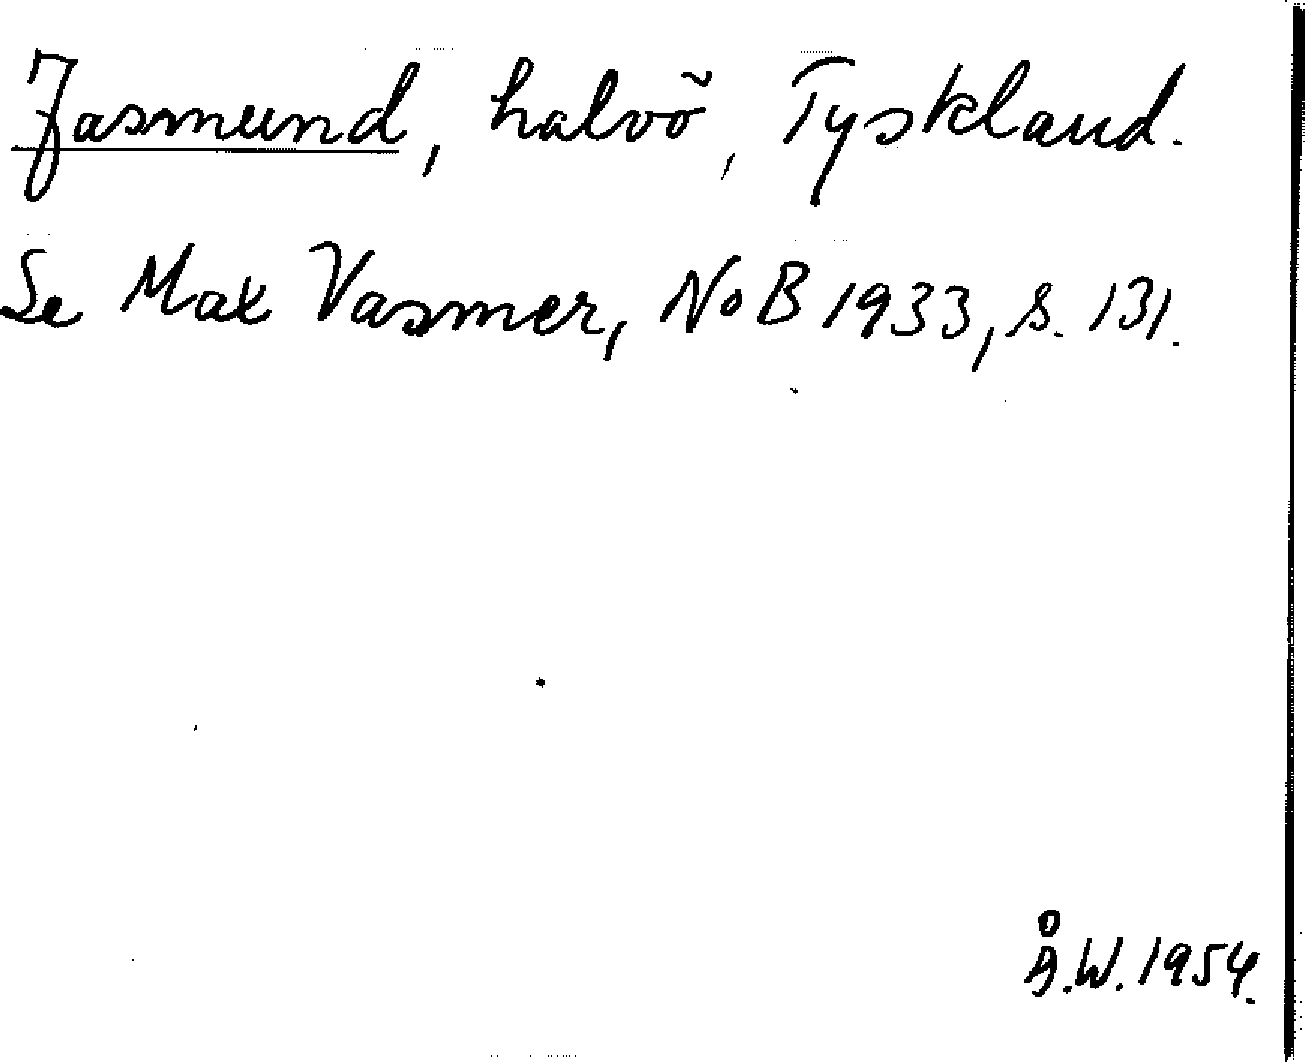 Jasmund, halvö, Tyskland.
Se Max Vasmer, NoB 1933, s. 131.
Å.W. 1954.